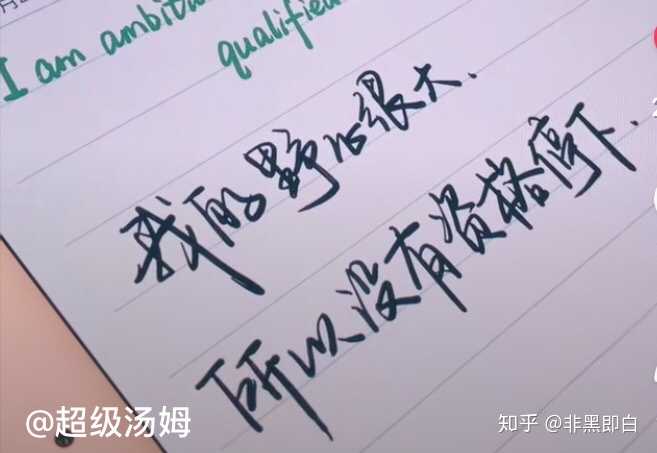 I am ambiti
qualified
我的野心很大.
所以没有资格停下.
@超级汤姆
知乎 @非黑即白